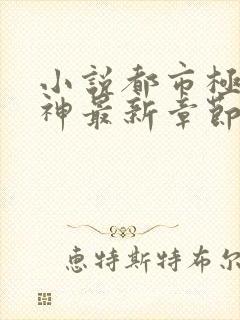 小説都市極
神最新章節
恵特斯特布尔